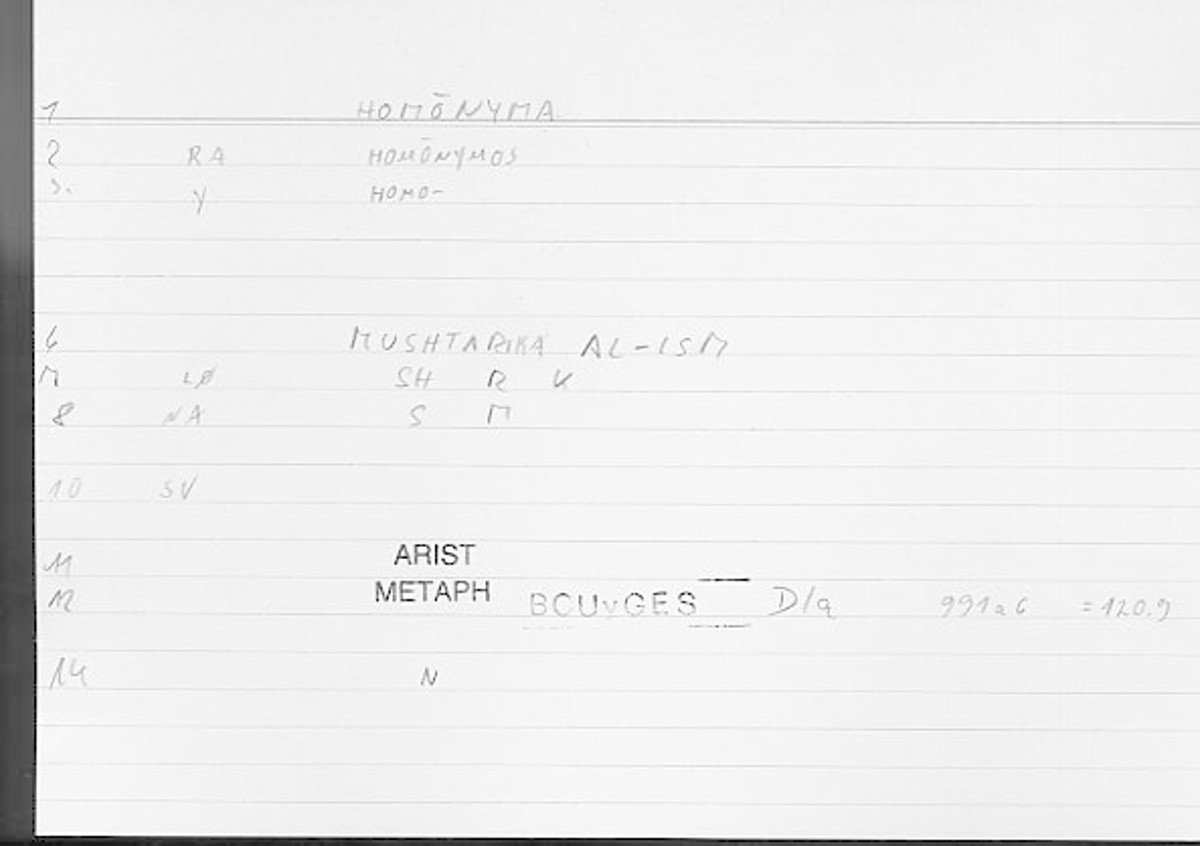 1 HOMŌNYMA
2 RA HOMŌNYMOS
3. Y HOMO-
6 MUSHTARIKA AL-ISM
7 LØ SH R K
8 NA S M
10 SV
11 ARIST
12 METAPH BOUYGES D/a 991a6 =120.9
14 N